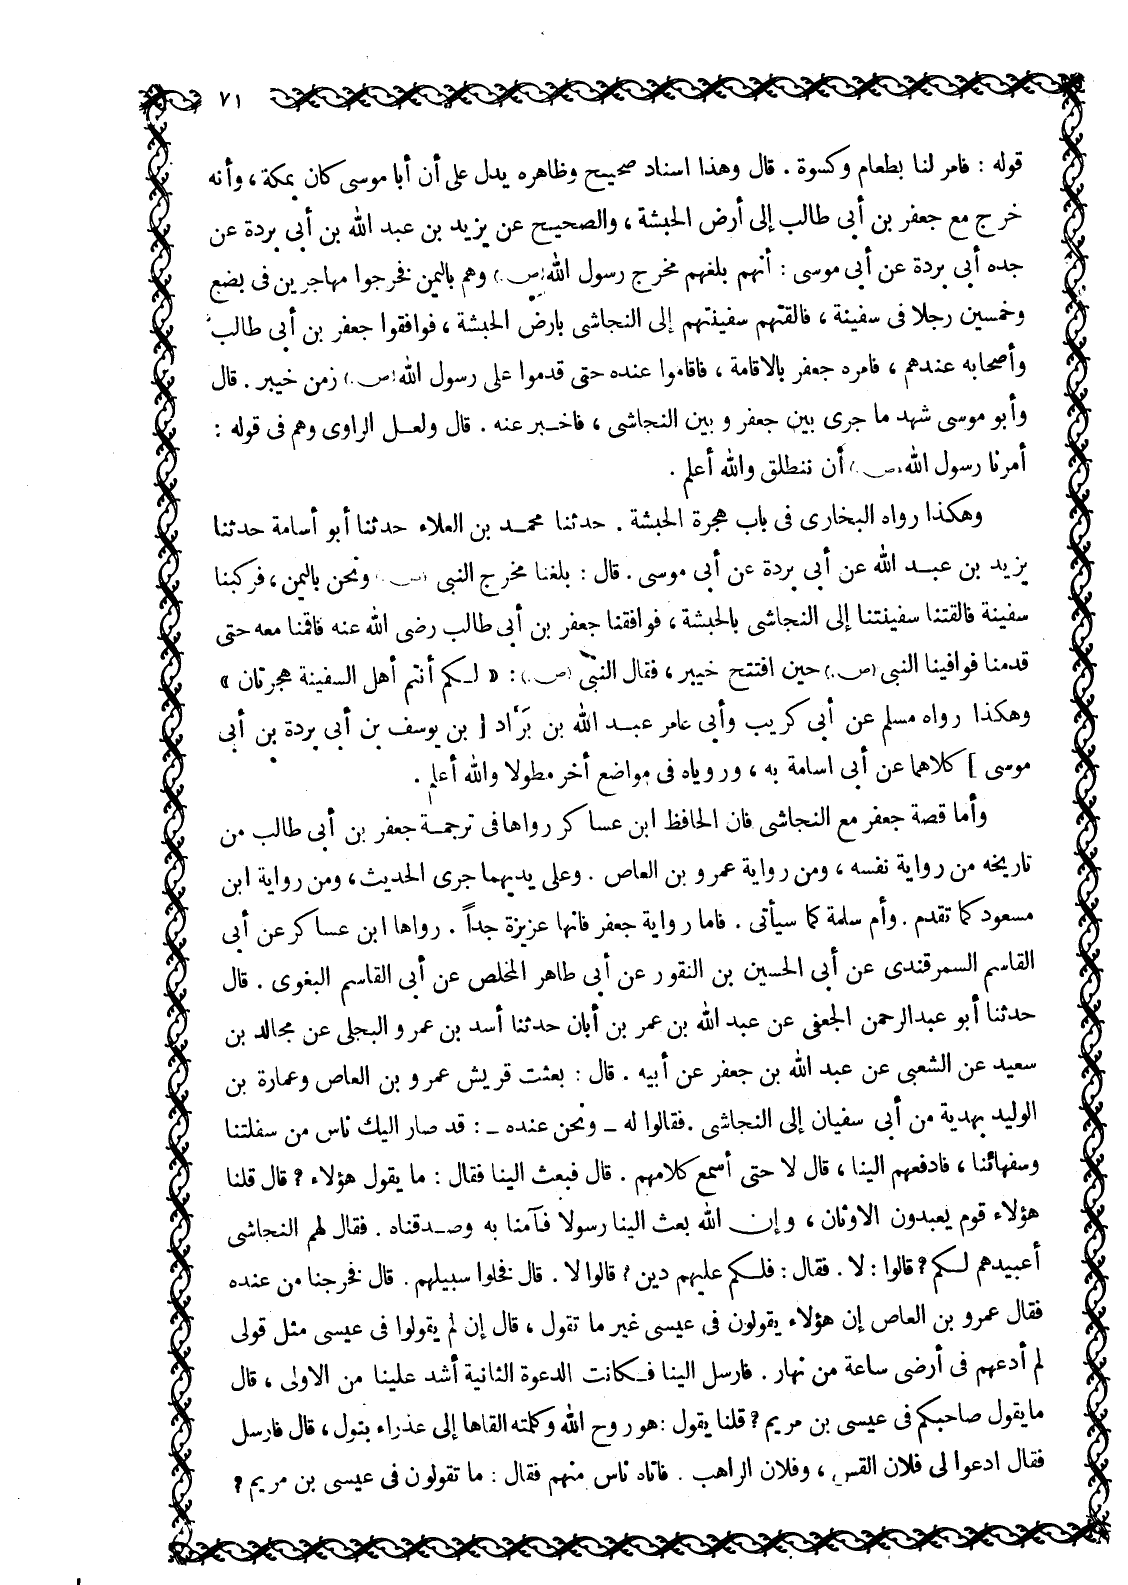 ٧١
قوله : فامر لنا بطعام وكسوة . قال وهذا اسناد صحيح وظاهره يدل على أن أبا موسى كان بمكة ، وأنه
خرج مع جعفر بن أبى طالب إلى أرض الحبشة ، والصحيح عن يزيد بن عبد الله بن أبى بردة عن
جده أبى بردة عن أبى موسى : أنهم بلغهم مخرج رسول الله (ص.) وهم باليمن فخرجوا مهاجرين فى بضع
وخمسين رجلا فى سفينة ، فالقتهم سفينتهم إلى النجاشى بارض الحبشة ، فوافقوا جعفر بن أبى طالب
وأصحابه عندهم ، فامره جعفر بالاقامة ، فاقاموا عنده حتى قدموا على رسول الله (ص.) زمن خيبر . قال
وأبو موسى شهد ما جرى بين جعفر وبين النجاشى ، فاخبر عنه . قال ولعل الراوى وهم فى قوله :
أمرنا رسول الله (ص.) أن ننطلق والله أعلم .
وهكذا رواه البخارى فى باب هجرة الحبشة . حدثنا محمد بن العلاء حدثنا أبو أسامة حدثنا
يزيد بن عبد الله عن أبى بردة عن أبى موسى . قال : بلغنا مخرج النبى (ص.) ونحن باليمن ، فركبنا
سفينة فالقتنا سفينتنا إلى النجاشى بالحبشة ، فوافقنا جعفر بن أبى طالب رضى الله عنه فاقمنا معه حتى
قدمنا فوافينا النبى (ص.) حين افتتح خيبر ، فقال النبى (ص.) : « لكم أنتم أهل السفينة هجرتان »
وهكذا رواه مسلم عن أبى كريب وأبى عامر عبد الله بن بَرَّاد [ بن يوسف بن أبى بردة بن أبى
موسى ] كلاهما عن أبى اسامة به ، وروياه فى مواضع أخر مطولا والله أعلم .
وأما قصة جعفر مع النجاشى فان الحافظ ابن عساكر رواها فى ترجمة جعفر بن أبى طالب من
تاريخه من رواية نفسه ، ومن رواية عمرو بن العاص . وعلى يديهما جرى الحديث ، ومن رواية ابن
مسعود كما تقدم . وأم سلمة كما سيأتى . فاما رواية جعفر فانها عزيزة جداً . رواها ابن عساكر عن أبى
القاسم السمرقندى عن أبى الحسين بن النقور عن أبى طاهر المخلص عن أبى القاسم البغوى . قال
حدثنا أبو عبدالرحمن الجعفى عن عبد الله بن عمر بن أبان حدثنا أسد بن عمرو البجلى عن مجالد بن
سعيد عن الشعبى عن عبد الله بن جعفر عن أبيه . قال : بعثت قريش عمرو بن العاص وعمارة بن
الوليد بهدية من أبى سفيان إلى النجاشى . فقالوا له ـ ونحن عنده ـ : قد صار اليك ناس من سفلتنا
وسفهائنا ، فادفعهم الينا ، قال لا حتى أسمع كلامهم . قال فبعث الينا فقال : ما يقول هؤلاء ? قال قلنا
هؤلاء قوم يعبدون الاوثان ، وإن الله بعث الينا رسولا فآمنا به وصدقناه . فقال لهم النجاشى
أعبيدهم لكم ? قالوا : لا . فقال : فلكم عليهم دين ? قالوا لا . قال فخلوا سبيلهم . قال فخرجنا من عنده
فقال عمرو بن العاص إن هؤلاء يقولون فى عيسى غير ما تقول ، قال إن لم يقولوا فى عيسى مثل قولى
لم أدعهم فى أرضى ساعة من نهار . فارسل الينا فكانت الدعوة الثانية أشد علينا من الاولى ، قال
ما يقول صاحبكم فى عيسى بن مريم ? قلنا يقول : هو روح الله وكلمته القاها إلى عذراء بتول ، قال فارسل
فقال ادعوا لى فلان القس ، وفلان الراهب . فاتاه ناس منهم فقال : ما تقولون فى عيسى بن مريم ?